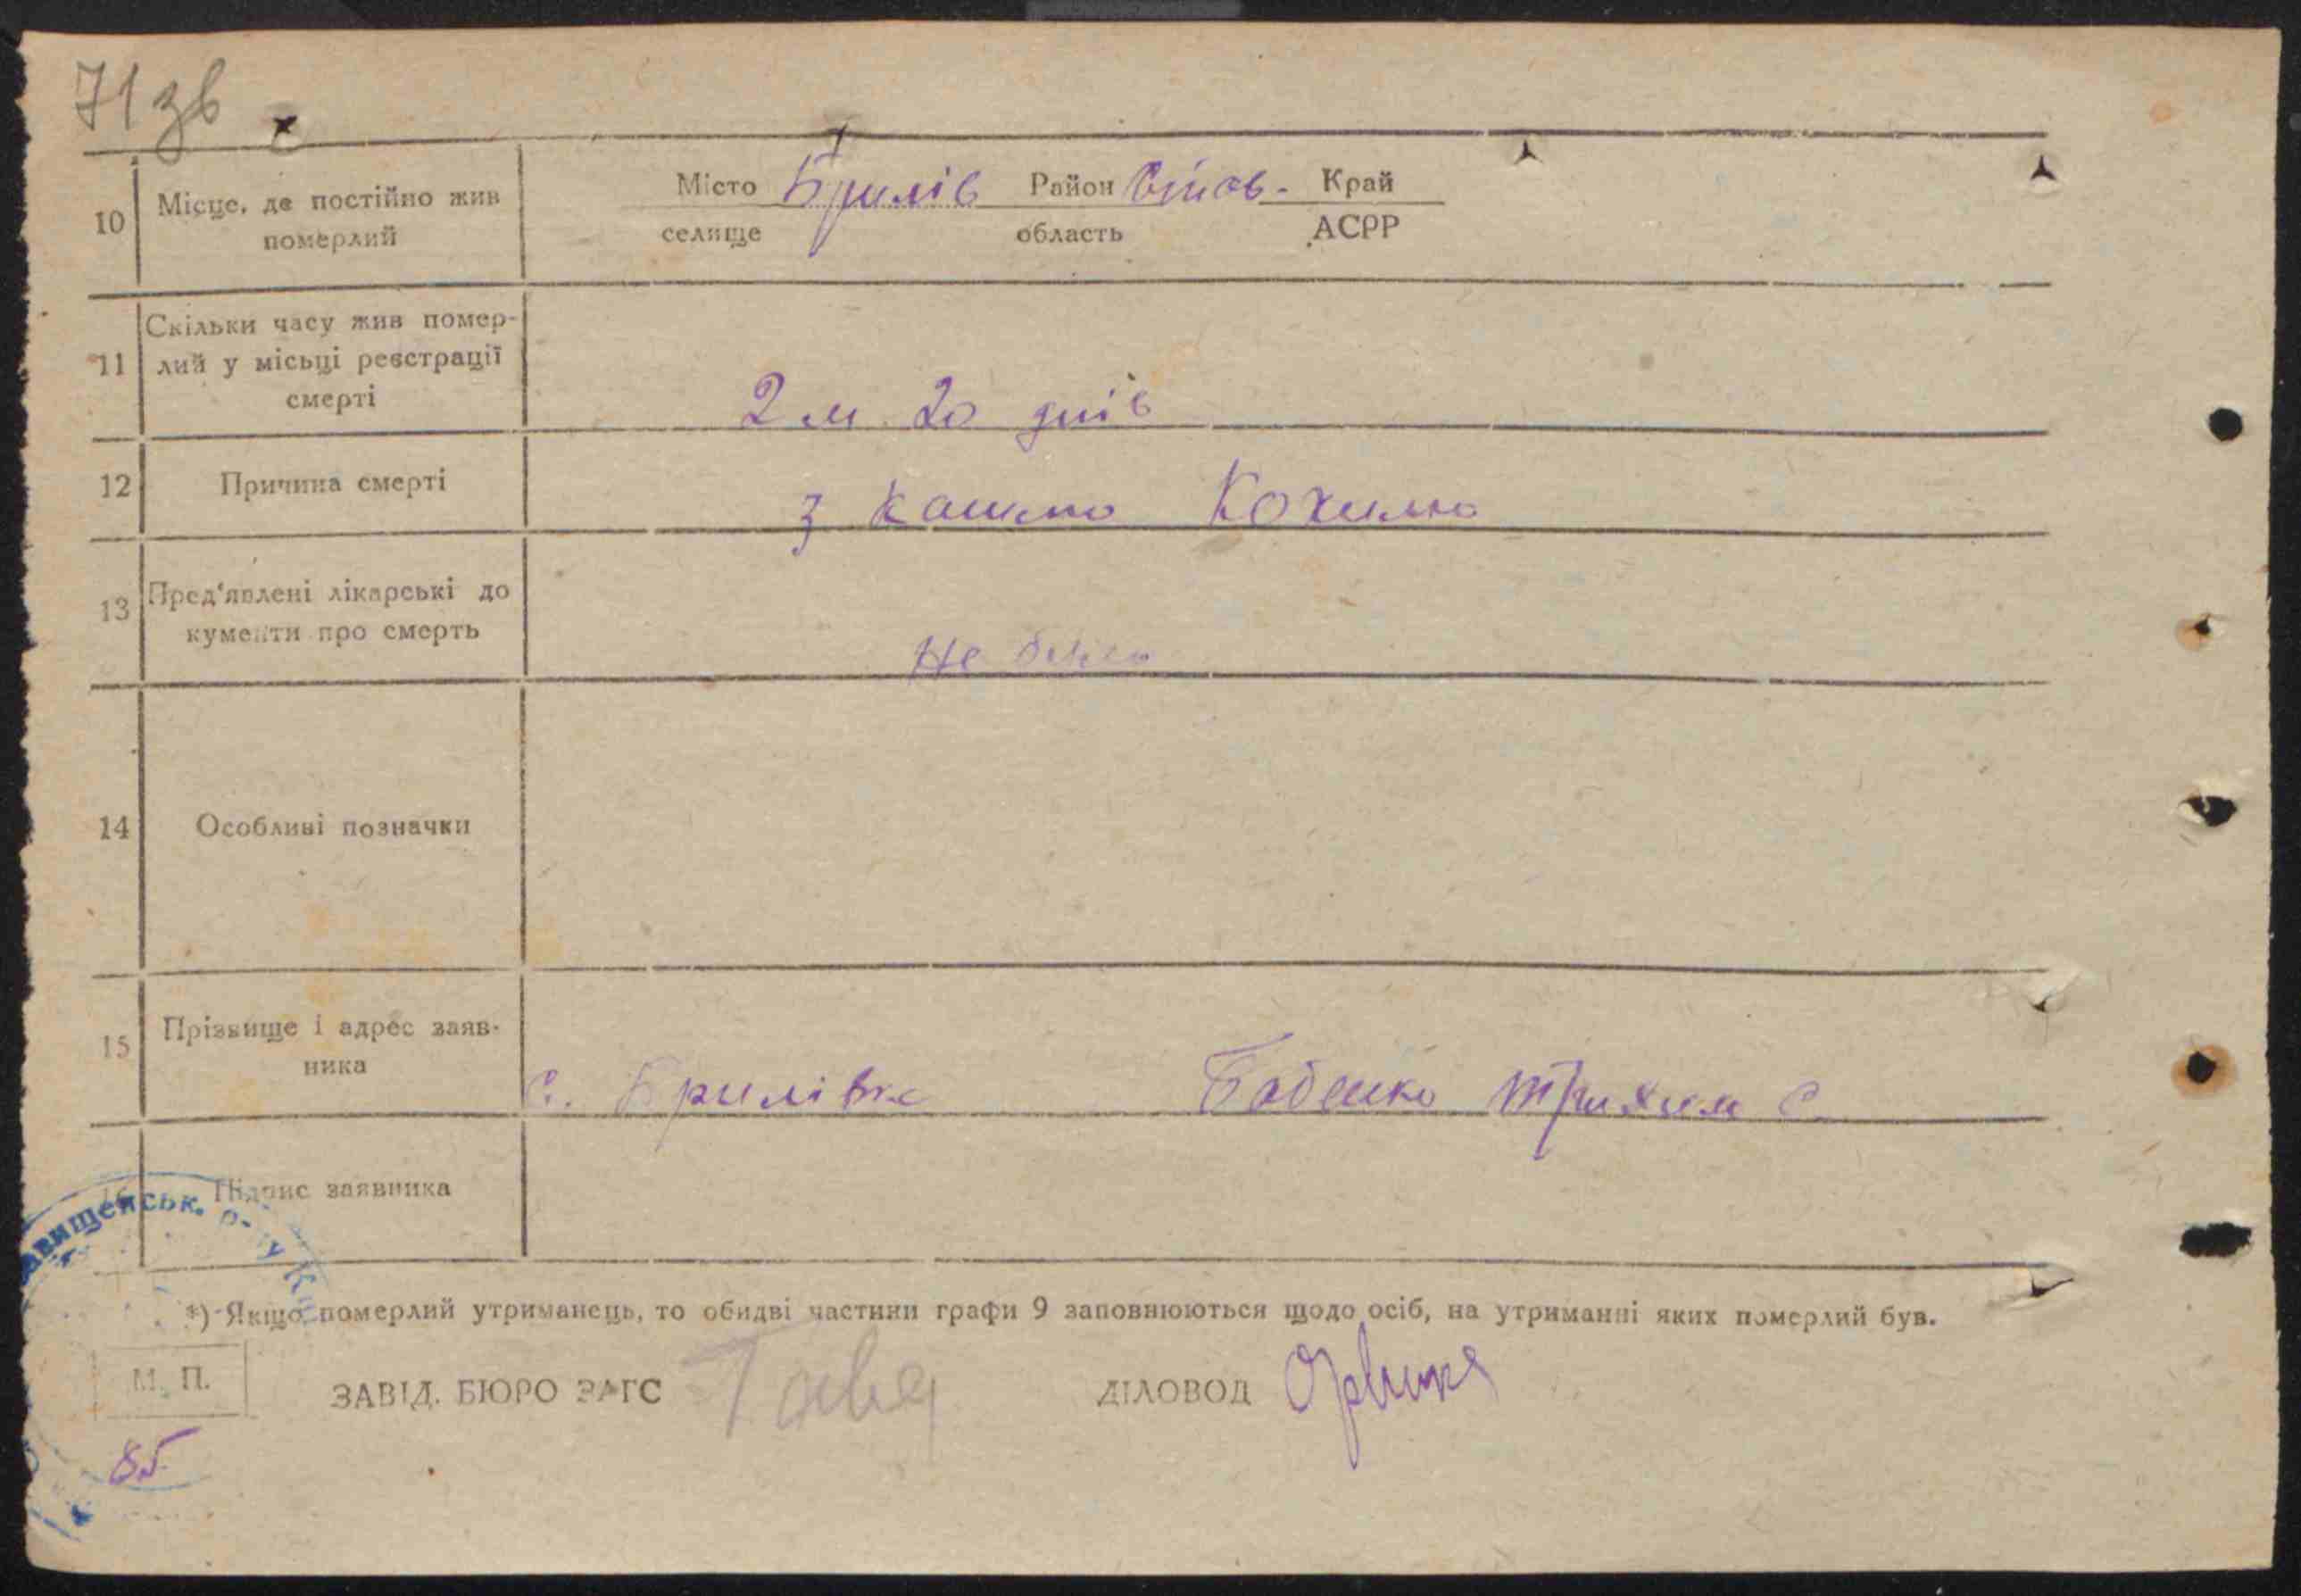 71 зв
10 Місце, де постійно жив померлий
Місто Брилів Район Край
селище область АСРР
11 Скільки часу жив помер-
лий у місьці реєстрації
смерті
2 м 20 днів
12 Причина смерті
з
13 Пред'явлені лікарські до
кументи про смерть
Не
14 Особливі позначки
15 Прізвище і адрес заяв-
ника
с. Брилівка Бабенко Трихим С
16 Підпис заявника
авищенськ. р-ну К
*) Якщо померлий утриманець, то обидві частини графи 9 заповнюються щодо осіб, на утриманні яких померлий був.
М. П.
ЗАВІД. БЮРО ЗАГС ДІЛОВОД
85